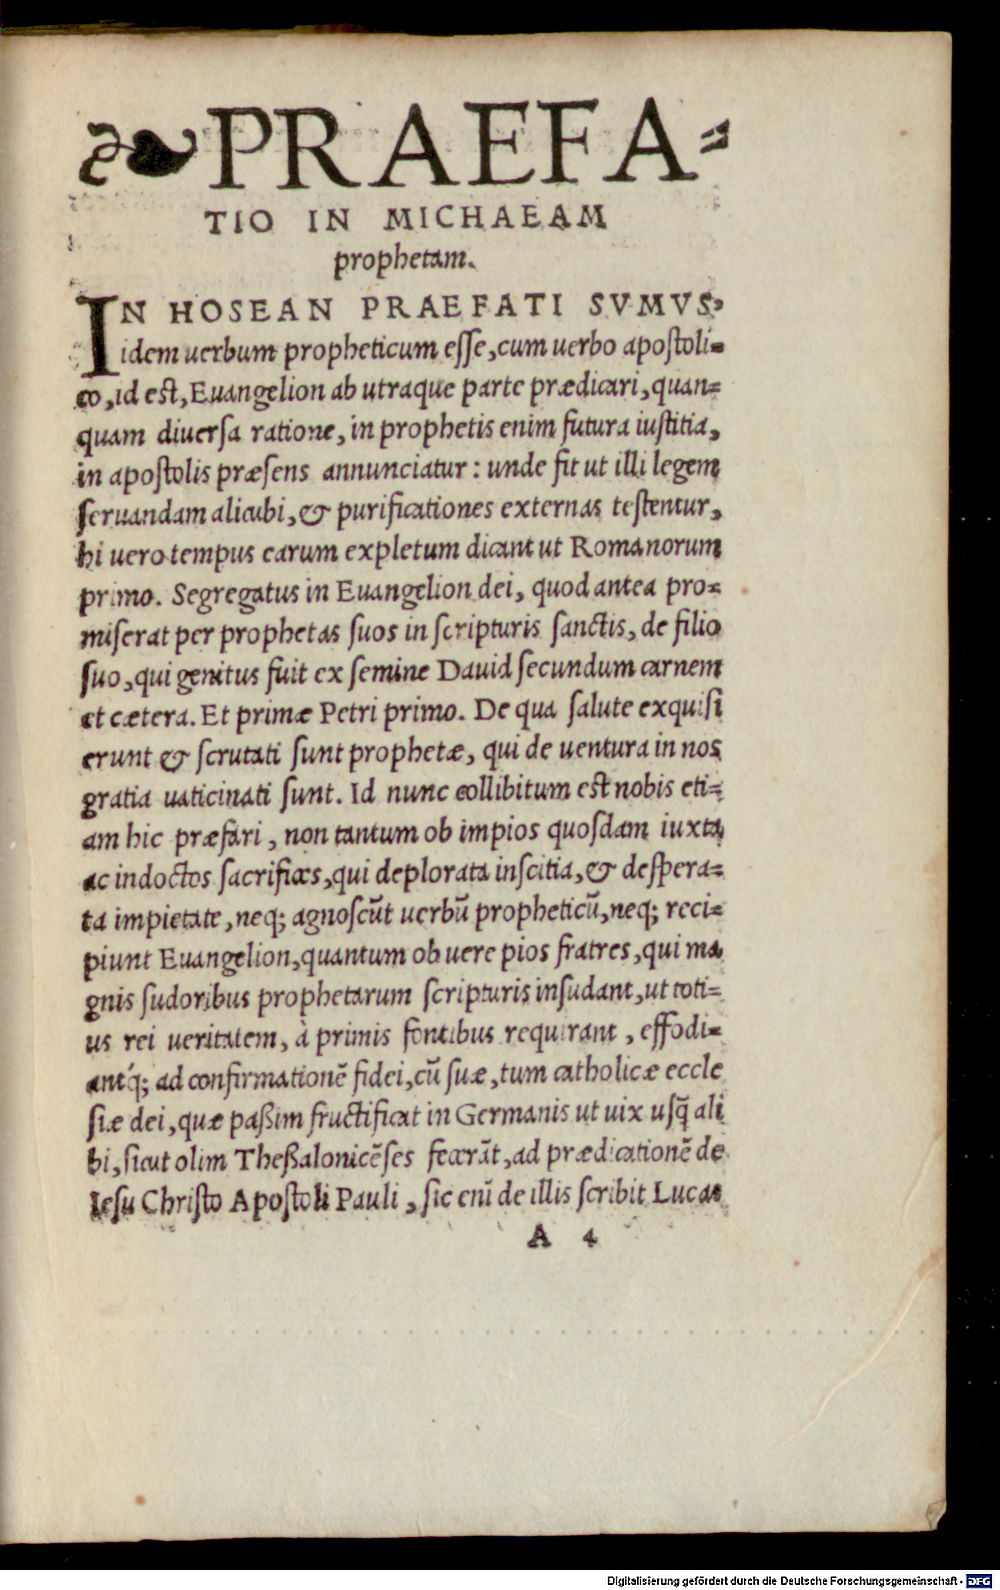 ❧PRAEFA⸗
TIO IN MICHAEAM
prophetam.
IN HOSEAN PRAEFATI SVMVS,
idem uerbum propheticum eſſe, cum uerbo apoſtoli⸗
co, id est, Euangelion ab utraque parte prædicari, quan⸗
quam diuerſa ratione, in prophetis enim futura iuſtitia,
in apoſtolis præſens annunciatur: unde fit ut illi legem
ſeruandam alicubi, & purificationes externas teſtentur,
hi uero tempus earum expletum dicant ut Romanorum
primo. Segregatus in Euangelion dei, quod antea pro⸗
miſerat per prophetas ſuos in ſcripturis ſanctis, de filio
ſuo, qui genitus fuit ex ſemine Dauid ſecundum carnem
et cætera. Et primæ Petri primo. De qua ſalute exquiſi
erunt & ſcrutati ſunt prophetæ, qui de uentura in nos
gratia uaticinati ſunt. Id nunc collibitum est nobis eti⸗
am hic præfari, non tantum ob impios quoſdam iuxta
ac indoctos ſacrificos, qui deplorata inſcitia, & deſpera⸗
ta impietate, neq; agnoſcūt uerbū propheticū, neq; reci⸗
piunt Euangelion, quantum ob uere pios fratres, qui ma
gnis ſudoribus prophetarum ſcripturis inſudant, ut toti⸗
us rei ueritatem, à primis fontibus requirant, effodi⸗
antq́; ad confirmationē fidei, cū ſuæ, tum catholicæ eccle
ſiæ dei, quæ paßim fructificat in Germanis ut uix uſq̄ ali
bi, ſicut olim Theßalonicēſes fecerāt, ad prædicationē de
Ieſu Chriſto Apoſtoli Pauli, ſic enī de illis ſcribit Lucas
A 4
Digitalisierung gefördert durch die Deutsche Forschungsgemeinschaft - DFG